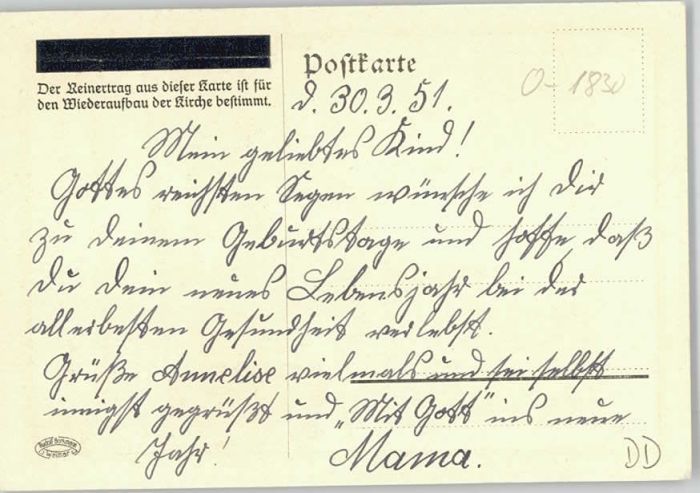 Der Reinertrag aus dieser Karte ist für
den Wiederaufbau der Kirche bestimmt.
Postkarte
O- 1830
d. 30.3.51.
Mein geliebtes Kind!
Gottes reichsten Segen wünsche ich Dir
zu Deinem Geburtstage und hoffe, daß
Du Dein neues Lebensjahr bei der
allerbesten Gesundheit verlebst.
Grüße Annelise vielmals und sei selbst
innigst gegrüßt und „Mit Gott“ ins neue
Jahr!
Mama.
DD
Weimar